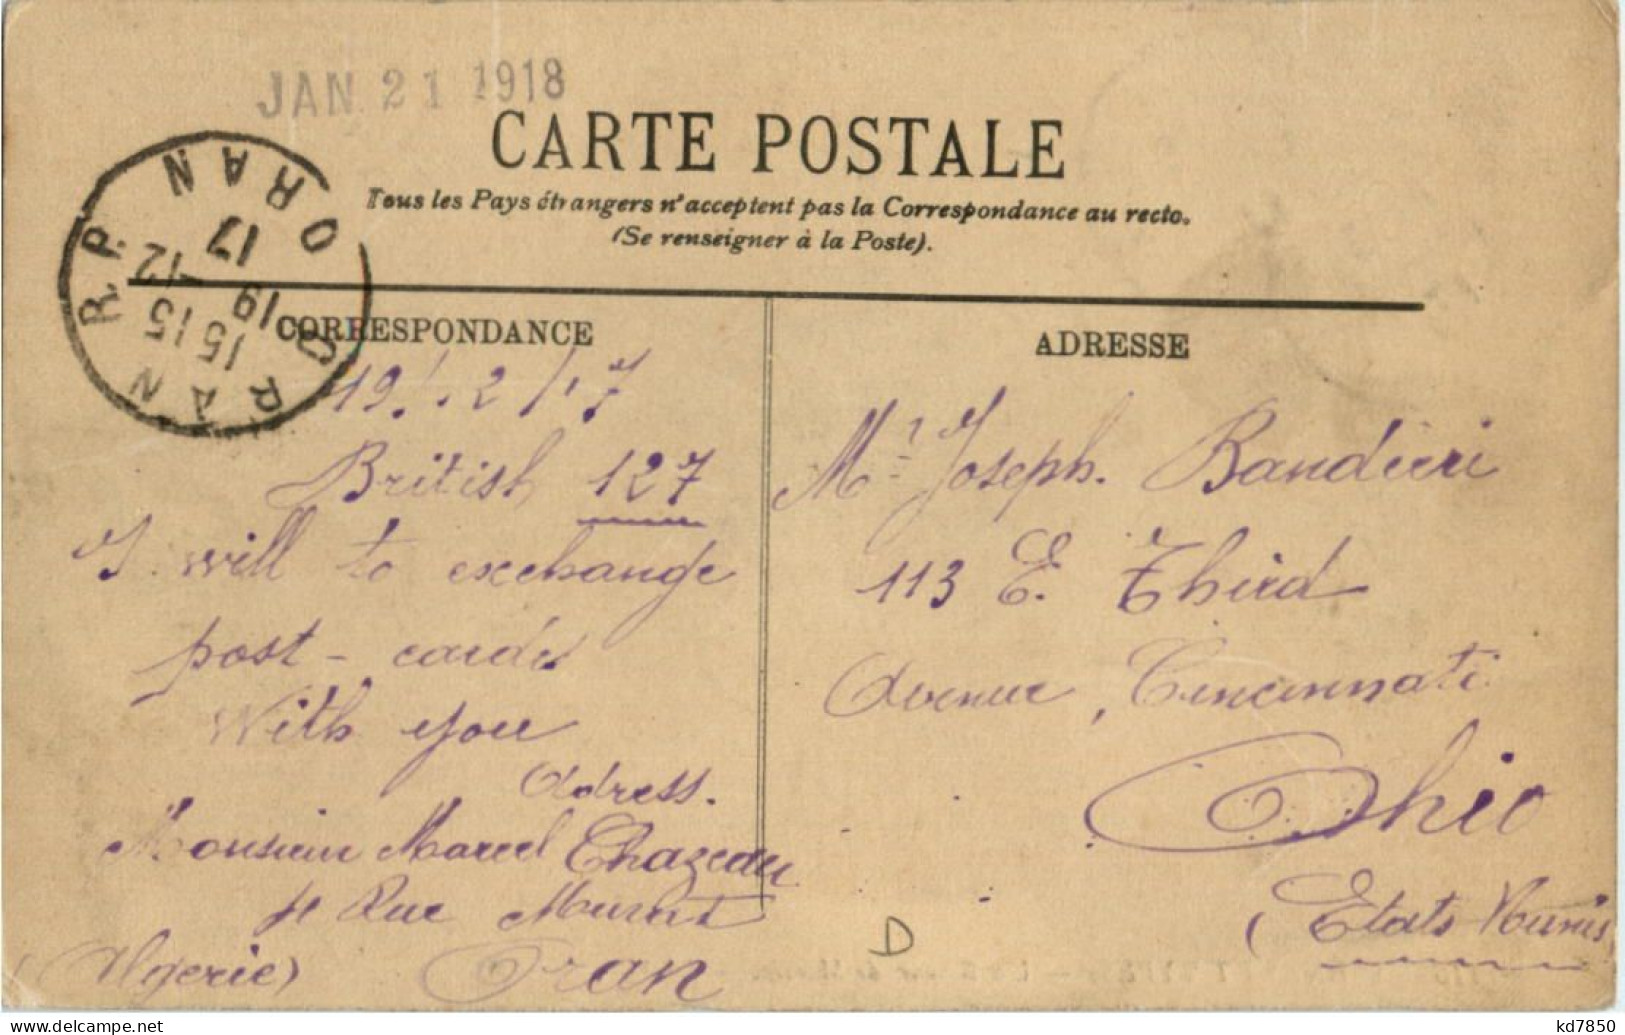 JAN 21 1918
CARTE POSTALE
Tous les Pays étrangers n'acceptent pas la Correspondance au recto.
(Se renseigner à la Poste).
ORAN
17
19 -12
15 15
ORAN R.P.
CORRESPONDANCE
ADRESSE
19/12/17
British 127
I will to exchange
post-cards
With you
Adress.
Monsieur Marcel Chazeau
Rue Murat
(Algerie) Oran
Mr Joseph. Bandieri
113 E. Third
Avenue, Cincinnati
Ohio
(Etats-Nunis
D
kd7850